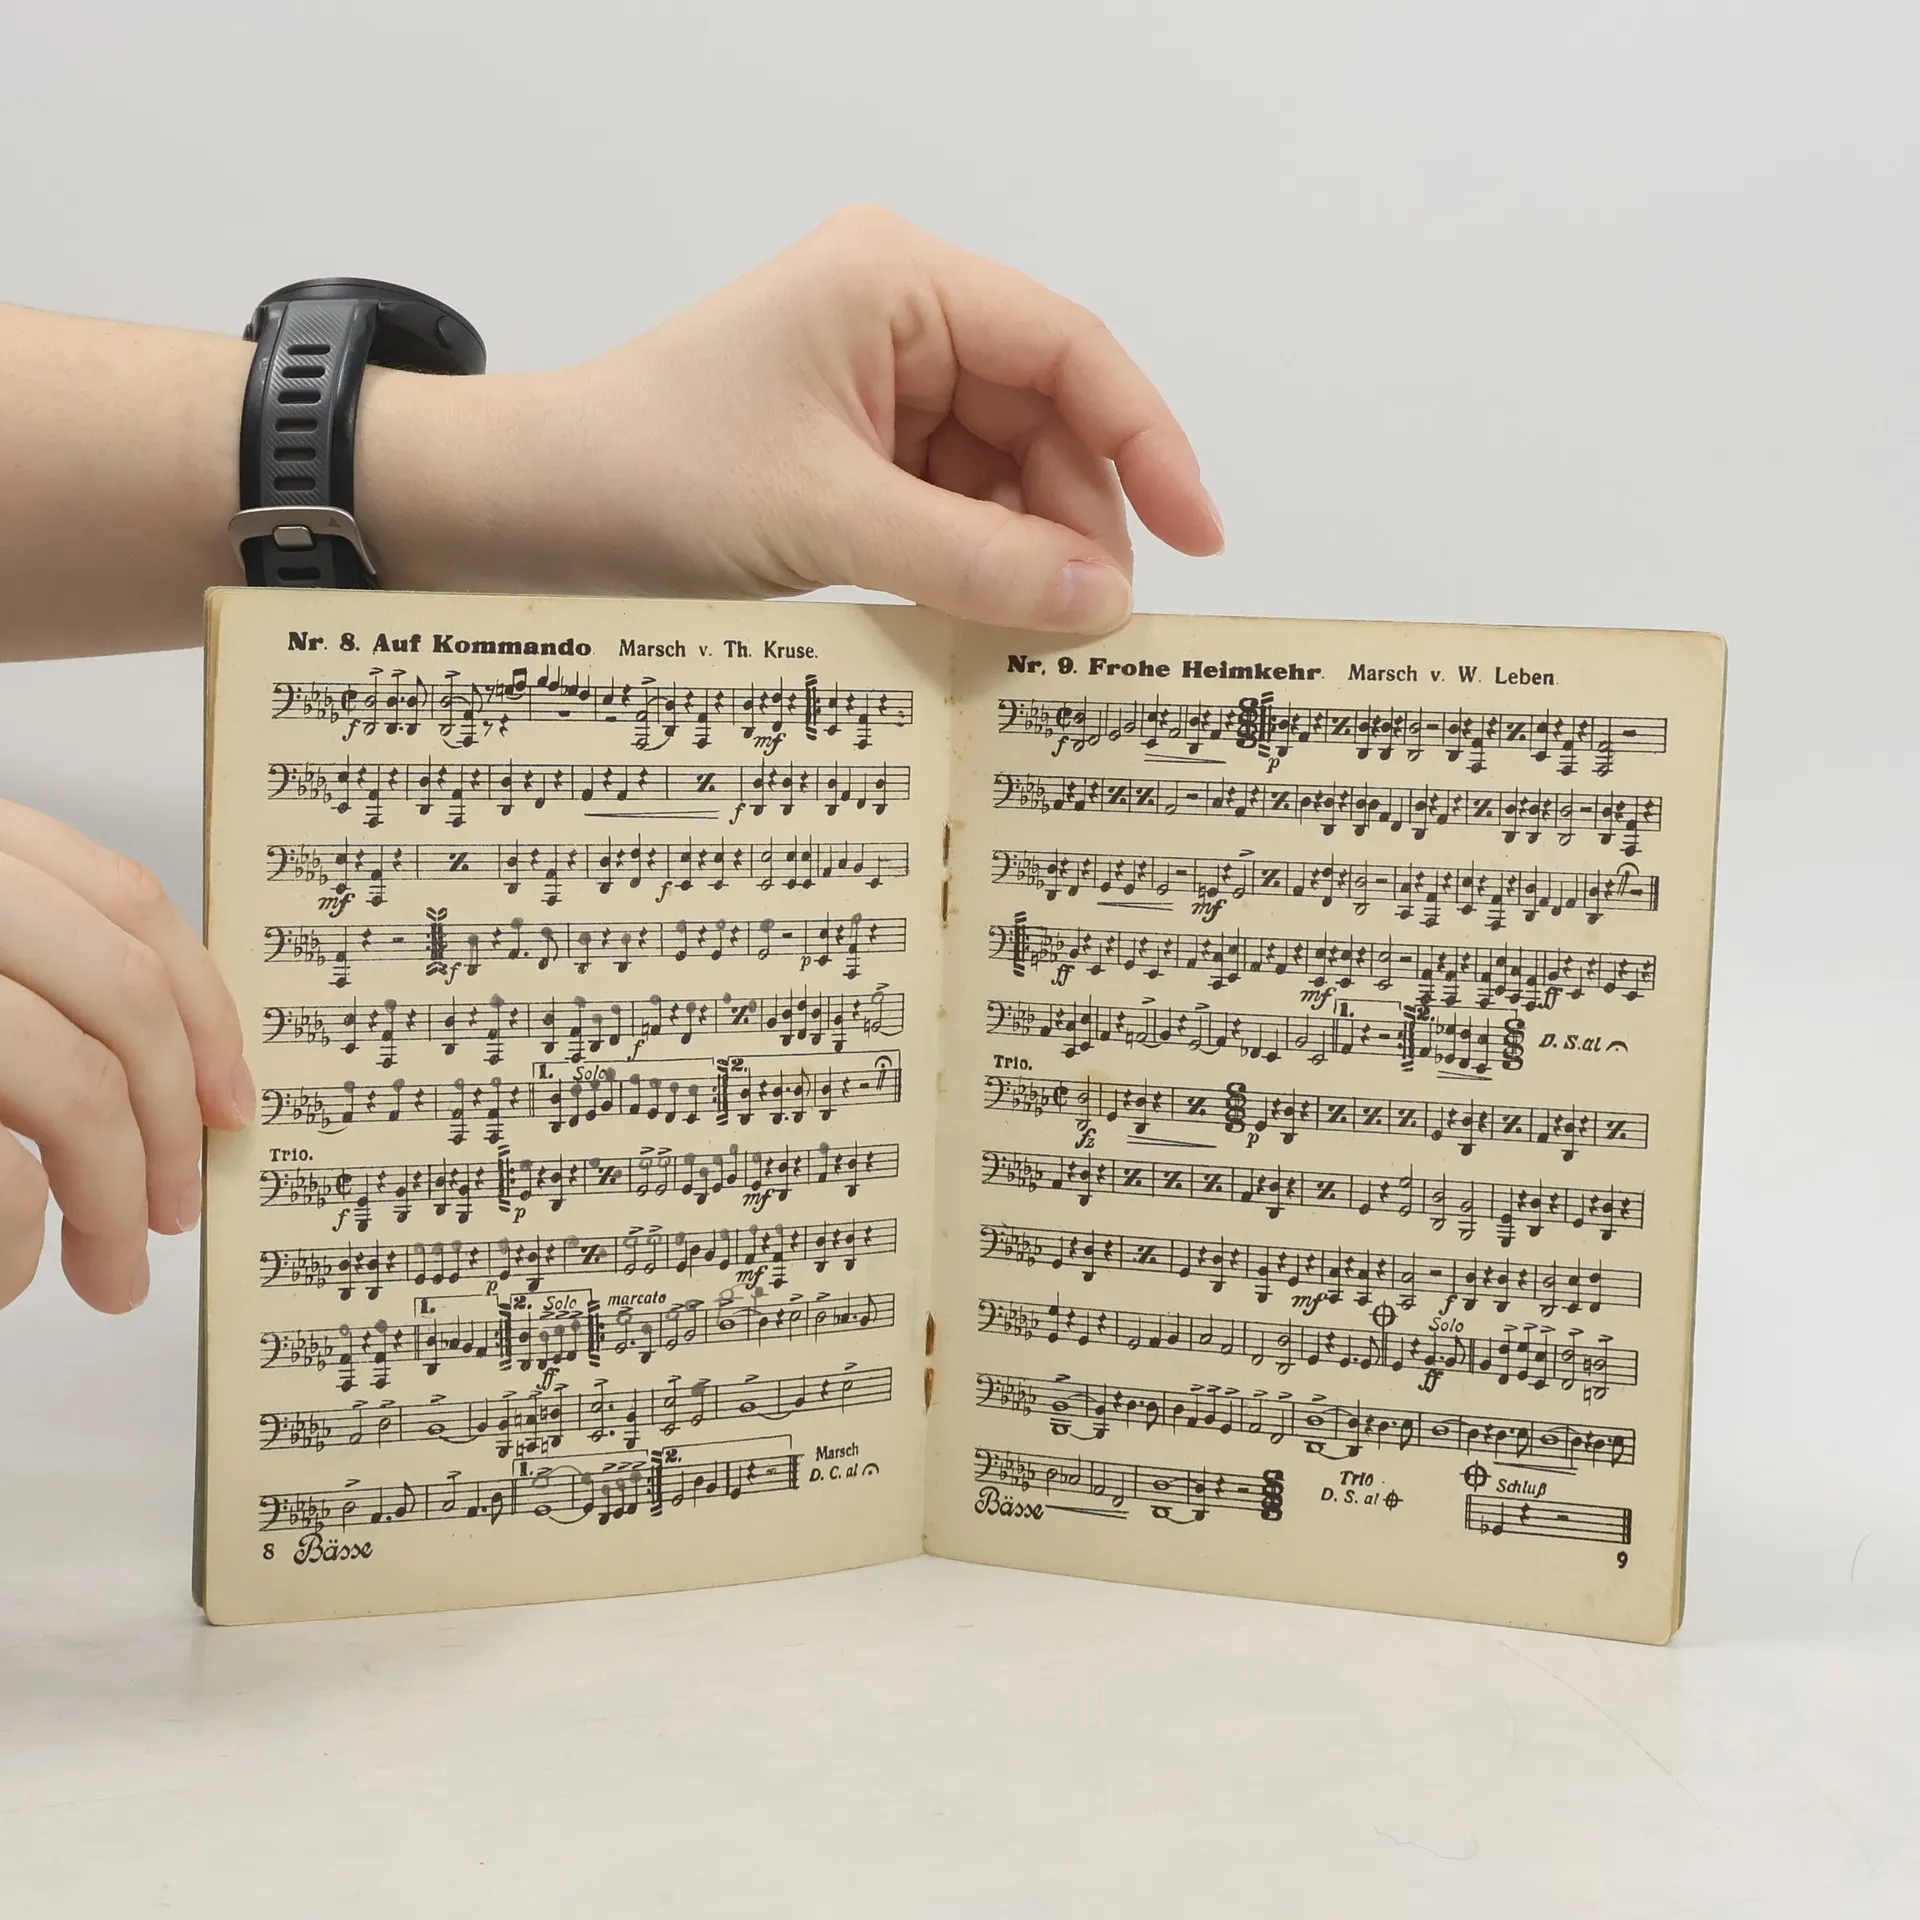 Nr. 8. Auf Kommando. Marsch v. Th. Kruse.
f
mf
f
mf
f
f
p
f
1. Solo 2.
Trio.
f
p
mf
p
mf
1. 2. Solo marcato
ff
1. 2. Marsch
D. C. al
8 Bässe
Nr. 9. Frohe Heimkehr. Marsch v. W. Leben.
f
p
mf
ff
mf
ff
1. 2. D. S. al
Trio.
fz
p
mf
f
Solo
ff
Trio
D. S. al
Schluß
Bässe
9